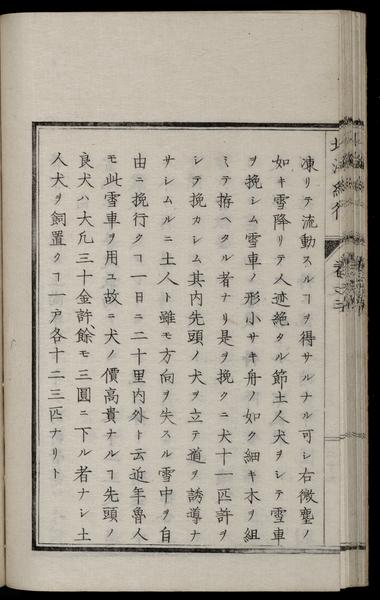 凍リテ流動スルヿヲ得サルナル可シ右微塵ノ
如キ雪降リテ人迹絶タル節土人犬ヲシテ雪車
ヲ挽シム雪車ノ形小サキ舟ノ如ク細キ木ヲ組
ミテ拵ヘタル者ナリ是ヲ挽クニ犬十一匹許ヲ
シテ挽カシム其内先頭ノ犬ヲ立テ道ヲ誘導ナ
サシムルニ土人ト雖モ方向ヲ失スル雪中ヲ自
由ニ挽行クヿ一日ニ二十里内外ト云近年魯人
モ此雪車ヲ用ユ故ニ犬ノ價高貴ナルヿ先頭ノ
良犬ハ大凢三十金許餘モ三圓ニ下ル者ナシ土
人犬ヲ飼置クヿ一戸各十二三匹ナリト